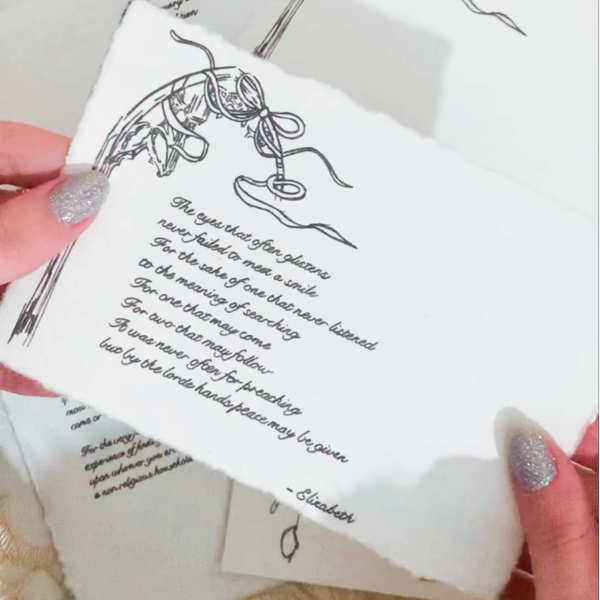 The eyes that often glistens
never failed to meet a smile
For the sake of one that never listened
to the meaning of searching
For one that may come
For two that may follow
It was never often for preaching
but by the lords hands peace may be given
- Elizabeth
most
come or
For the
experience of
upon whomever you are
a non religious household